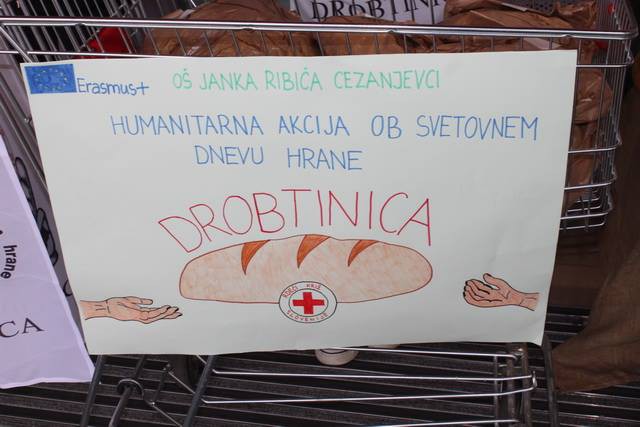 DROBTINICA
Erasmus+
OŠ JANKA RIBIČA CEZANJEVCI
HUMANITARNA AKCIJA OB SVETOVNEM
DNEVU HRANE
DROBTINICA
RDEČI KRIŽ
SLOVENIJE
hrane
CA